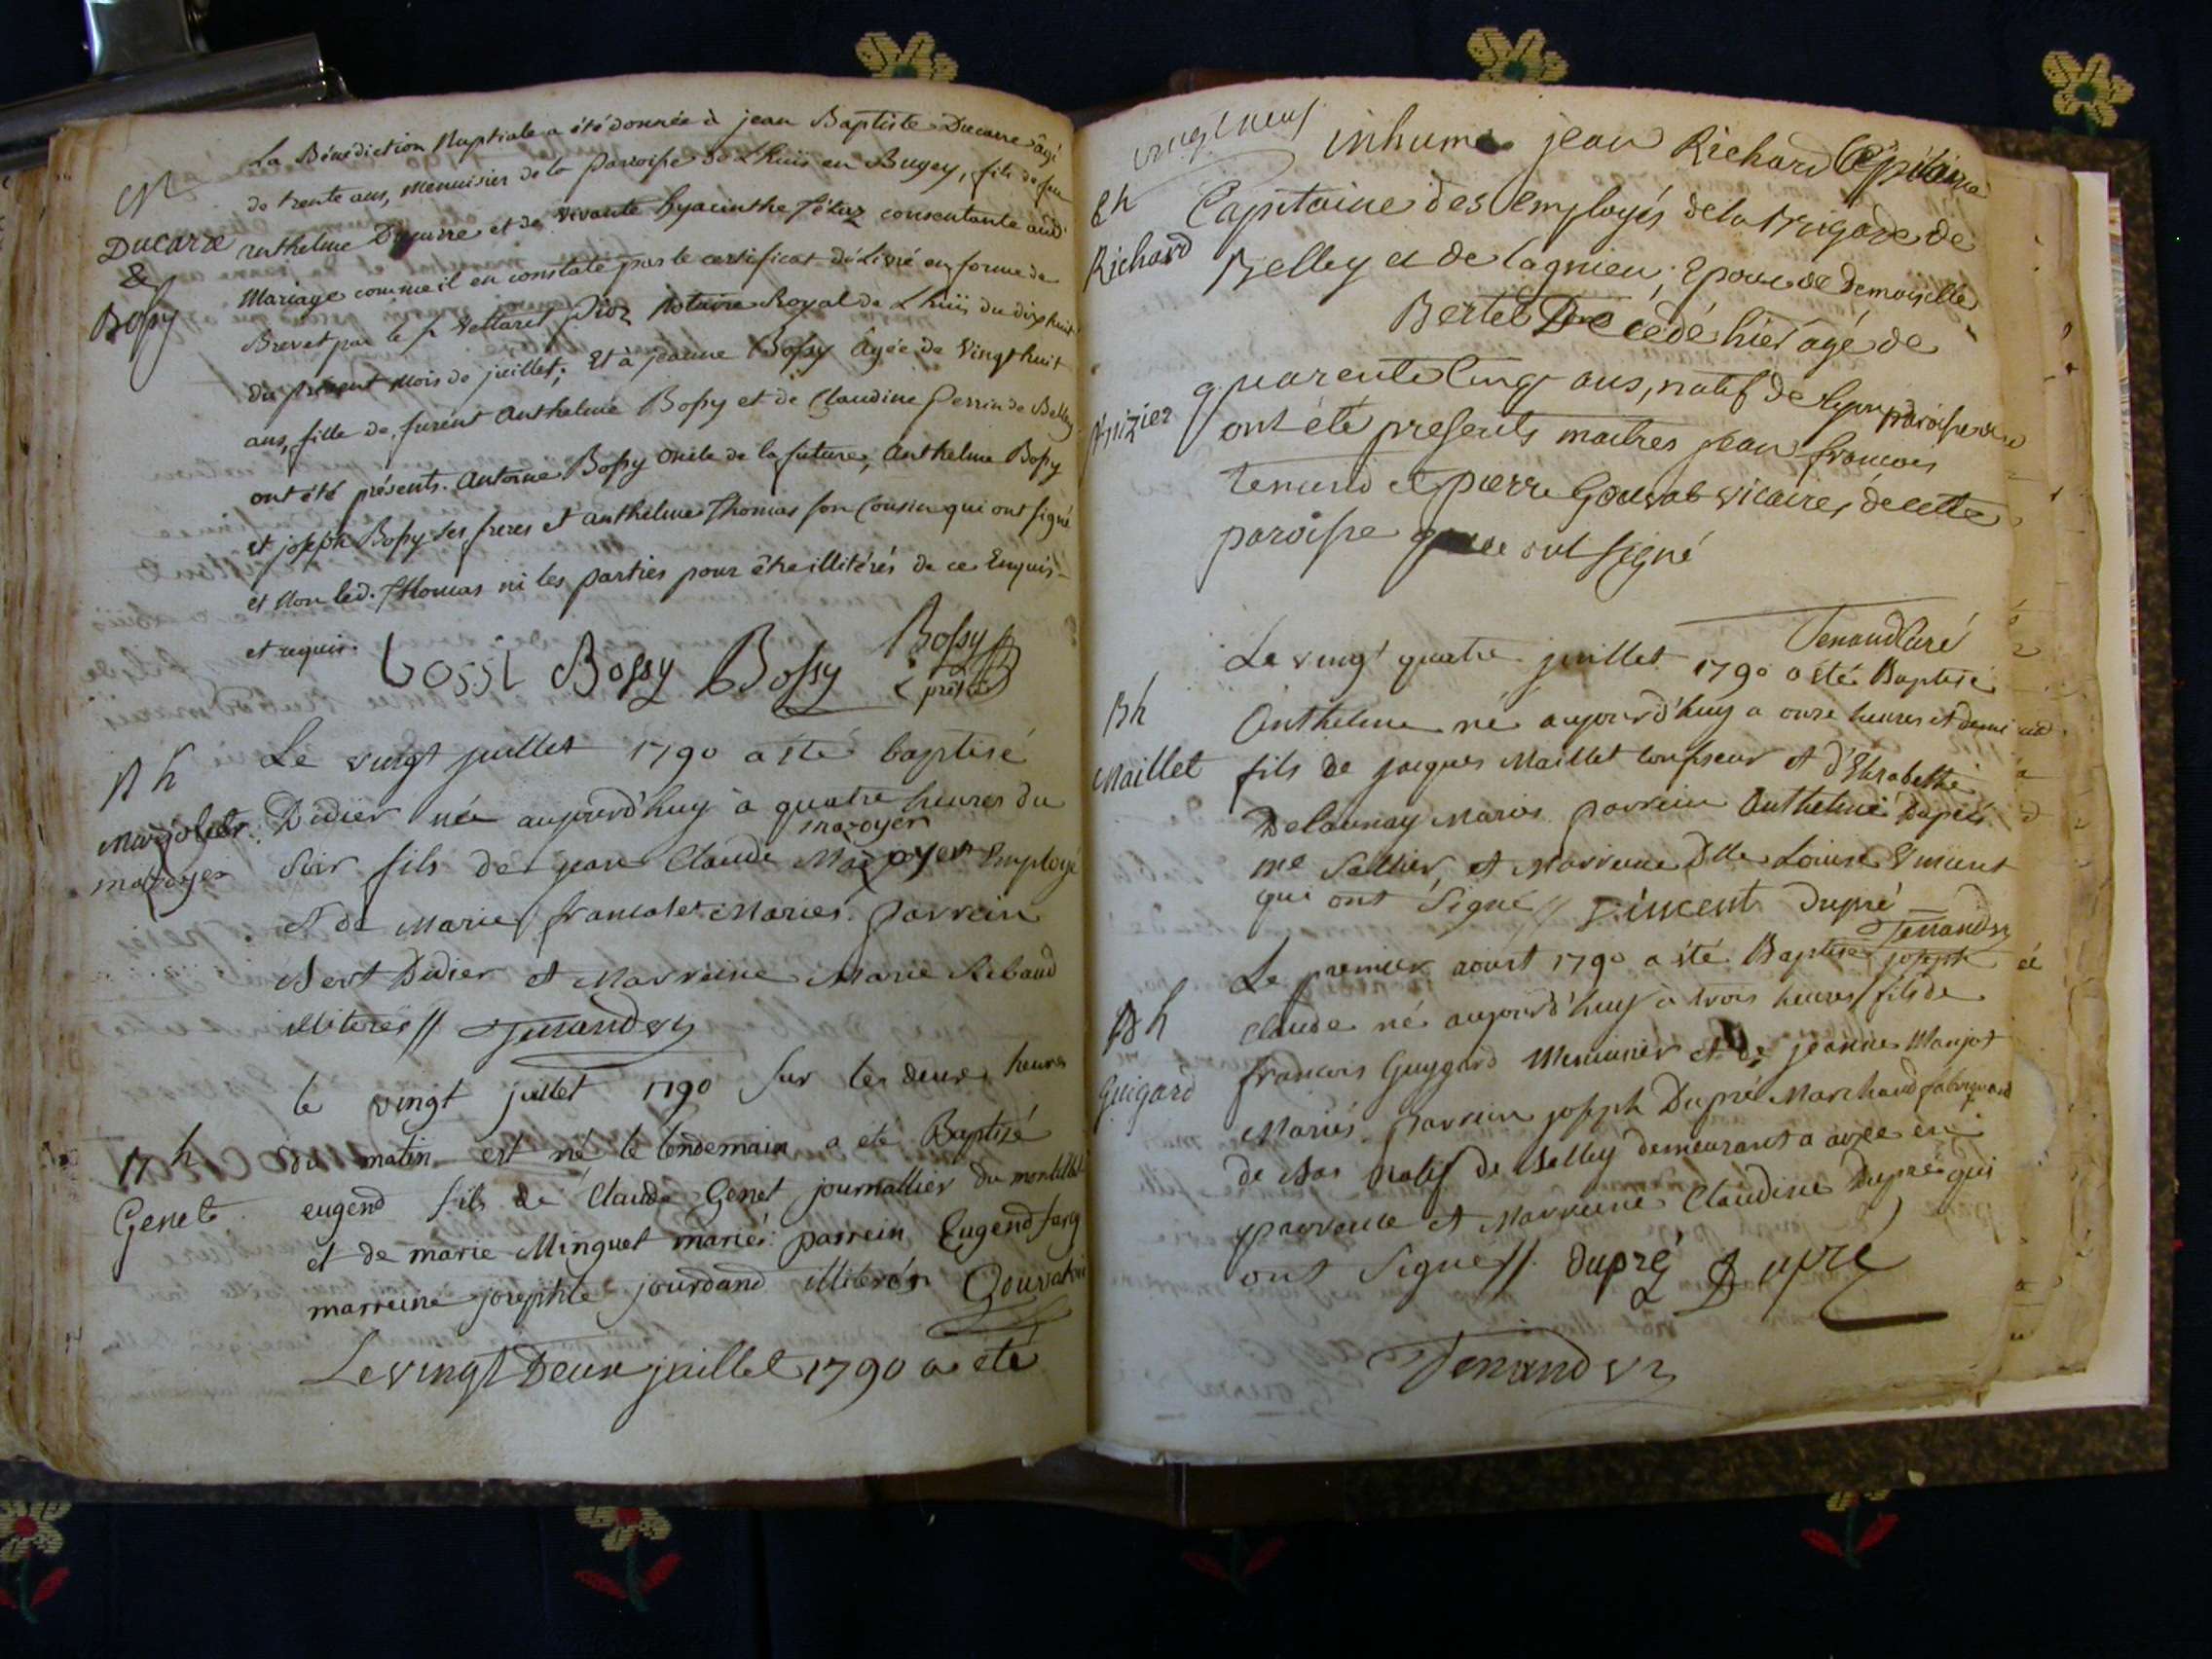 La Bénédiction Nuptiale a été donnée à jean Baptiste Ducarre âgé
de trente ans, menuisier de la paroisse de Lhuis en Bugey, fils de feu
M
Ducarre
&
Bossy
anthelme Ducarre et de vivante hyacinthe consentante aud.
Mariage comme il en constate par le certificat délivré en forme de
Brevet par le Sr Notaire Royal de Lhuis du dix huit
du présent mois de juillet; Et à jeanne Bossy âgée de vingt huit
ans, fille de furent Anthelme Bossy et de Claudine Perrin de Belley
ont été présents. Antoine Bossy oncle de la future, Anthelme Bossy
et joseph Bossy ses freres et anthelme Thomas son cousin qui ont signé
et Non led. Thomas ni les parties pour être illitérés de ce Enquis
et requis.
bossi Bossy Bossy Bossy
prêtre
B h
marjolet
mazoyer
Le vingt juillet 1790 a été baptisé
Didier né aujourd'huy à quatre heures du
mazoyer
soir fils de jean Claude Employé
et de Marie francolet Mariés. parrein
Bert Didier et Marreine Marie Ribaud
illiterés // Tenand vic
B h
Genet
le vingt juillet 1790 sur les deux heures
du matin est né le lendemain a été Baptisé
eugend fils de Claude Genet journallier du montillet
et de marie Minguet mariés. parrein Eugend
marreine josephte jourdand illiterés Gouvat vic
Le vingt Deux juillet 1790 a été
vingt neuf
inhumé jean Richard
E h
Richard
Capitaine des Employés de la Brigade de
Belley et de Lagnieu, Epoux de Demoiselle
Bertet Décédé hier âgé de
quarente cinq ans, natif de Lyon paroisse de
St nizier
ont été presents maitres jean francois
tenand et pierre Gouvat vicaires de cette
paroisse qui ont signé
Tenand Curé
B h
Maillet
Le vingt quatre juillet 1790 a été Baptisé
Anthelme né aujourd'huy a onze heures et demi
fils de jacques Maillet confiseur et d'Elizabethe
Delaunay Mariés parrein Anthelme Dupré
me Sellier, et Marreine Dlle Louise Vincent
qui ont Signé // Vincent Dupré
Tenand vic
B h
Guigard
Le premier aoust 1790 a été Baptisé joseph
Claude né aujourd'huy à trois heures fils de
francois Guygard Menuisier et de jeanne Manjot
Mariés parrein joseph Dupré Marchand fabriquand
de Bas natif de Belley demeurant a en
provence et Marreine Claudine Dupré qui
ont Signé // dupré Dupré
Tenand vic